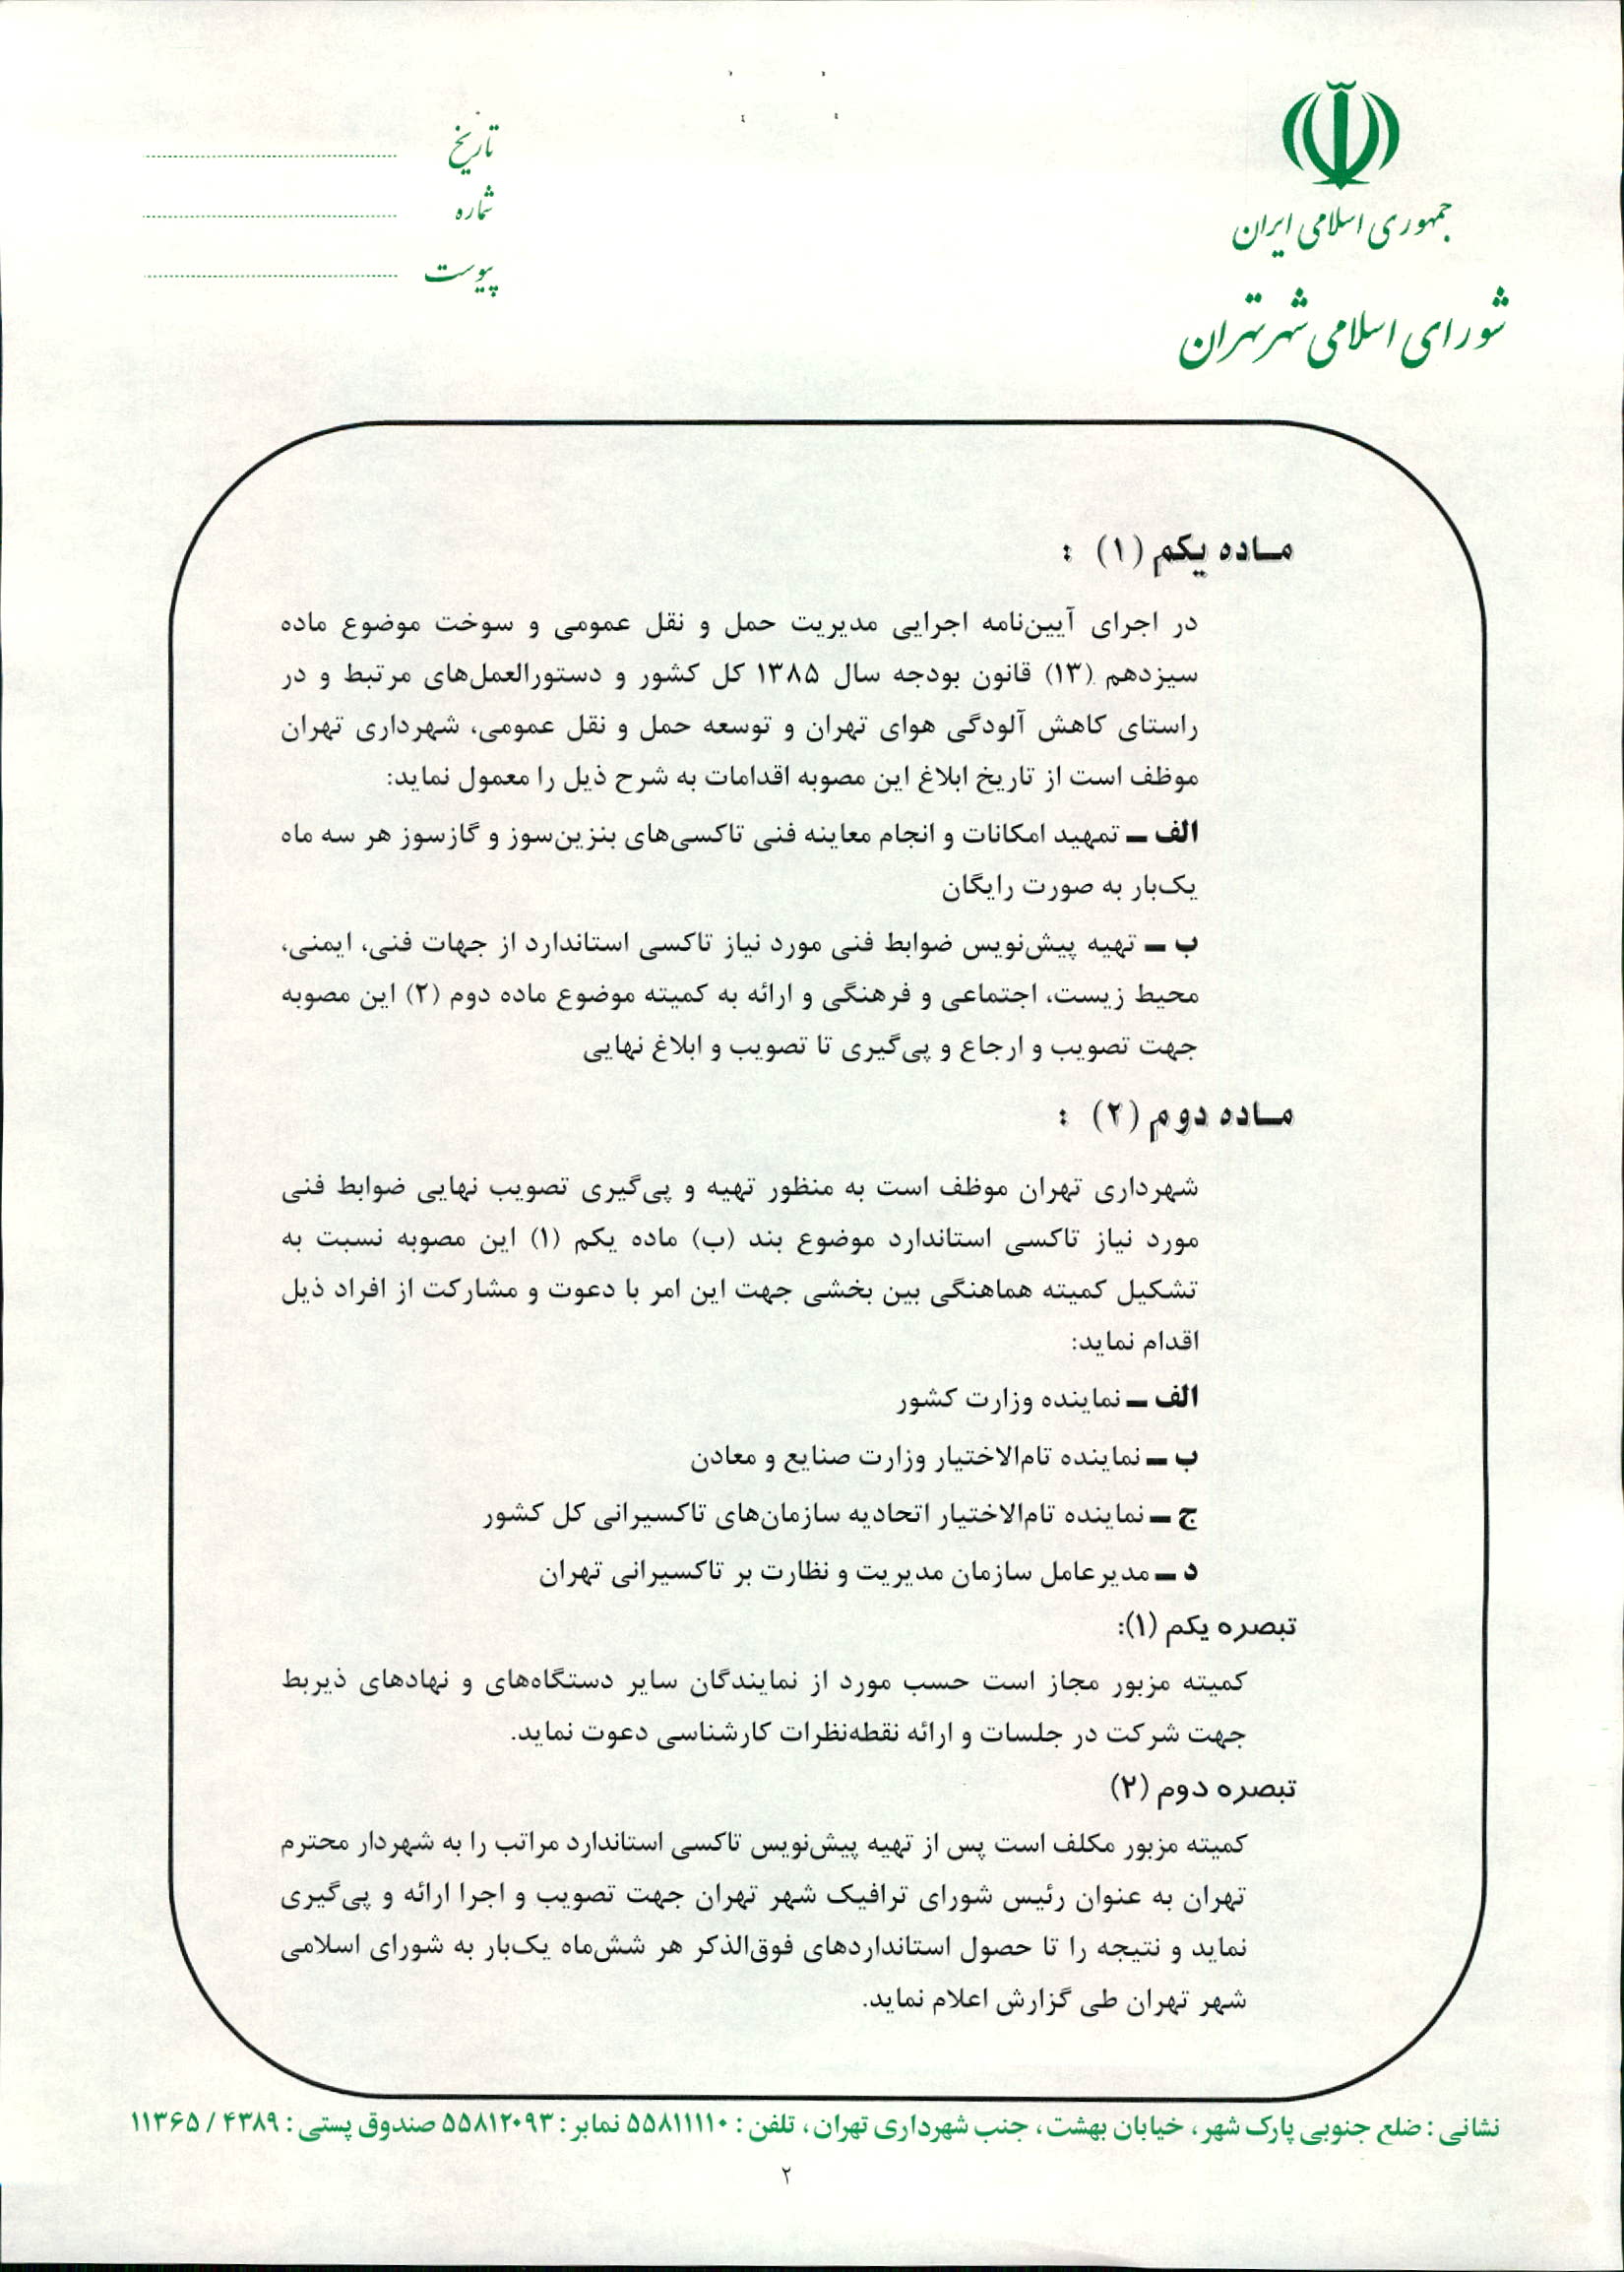 جمهوری اسلامی ایران
شورای اسلامی شهر تهران
تاریخ ........................
شماره ........................
پیوست ........................
مـاده یکم (۱) :
در اجرای آیین‌نامه اجرایی مدیریت حمل و نقل عمومی و سوخت موضوع ماده
سیزدهم (۱۳) قانون بودجه سال ۱۳۸۵ کل کشور و دستورالعمل‌های مرتبط و در
راستای کاهش آلودگی هوای تهران و توسعه حمل و نقل عمومی، شهرداری تهران
موظف است از تاریخ ابلاغ این مصوبه اقدامات به شرح ذیل را معمول نماید:
الف ـ تمهید امکانات و انجام معاینه فنی تاکسی‌های بنزین‌سوز و گازسوز هر سه ماه
یک‌بار به صورت رایگان
ب ـ تهیه پیش‌نویس ضوابط فنی مورد نیاز تاکسی استاندارد از جهات فنی، ایمنی،
محیط زیست، اجتماعی و فرهنگی و ارائه به کمیته موضوع ماده دوم (۲) این مصوبه
جهت تصویب و ارجاع و پی‌گیری تا تصویب و ابلاغ نهایی
مـاده دوم (۲) :
شهرداری تهران موظف است به منظور تهیه و پی‌گیری تصویب نهایی ضوابط فنی
مورد نیاز تاکسی استاندارد موضوع بند (ب) ماده یکم (۱) این مصوبه نسبت به
تشکیل کمیته هماهنگی بین بخشی جهت این امر با دعوت و مشارکت از افراد ذیل
اقدام نماید:
الف ـ نماینده وزارت کشور
ب ـ نماینده تام‌الاختیار وزارت صنایع و معادن
ج ـ نماینده تام‌الاختیار اتحادیه سازمان‌های تاکسیرانی کل کشور
د ـ مدیرعامل سازمان مدیریت و نظارت بر تاکسیرانی تهران
تبصره یکم (۱):
کمیته مزبور مجاز است حسب مورد از نمایندگان سایر دستگاه‌های و نهادهای ذیربط
جهت شرکت در جلسات و ارائه نقطه‌نظرات کارشناسی دعوت نماید.
تبصره دوم (۲)
کمیته مزبور مکلف است پس از تهیه پیش‌نویس تاکسی استاندارد مراتب را به شهردار محترم
تهران به عنوان رئیس شورای ترافیک شهر تهران جهت تصویب و اجرا ارائه و پی‌گیری
نماید و نتیجه را تا حصول استانداردهای فوق‌الذکر هر شش‌ماه یک‌بار به شورای اسلامی
شهر تهران طی گزارش اعلام نماید.
نشانی : ضلع جنوبی پارک شهر، خیابان بهشت، جنب شهرداری تهران، تلفن : ۵۵۸۱۱۱۱۰ نمابر : ۵۵۸۱۲۰۹۳ صندوق پستی : ۴۳۸۹ / ۱۱۳۶۵
۲